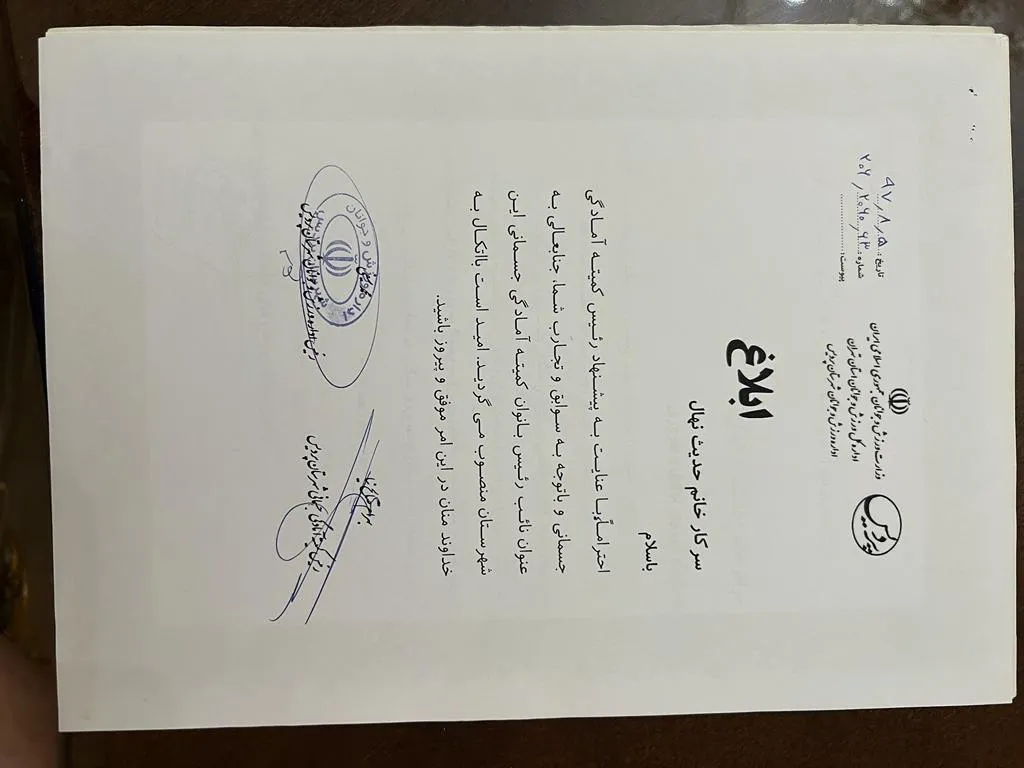 وزارت ورزش و جوانان جمهوری اسلامی ایران
اداره کل ورزش و جوانان استان تهران
اداره ورزش و جوانان شهرستان پردیس
پردیس
تاریخ: ۹۷/۸/۰۵
شماره:
پیوست:
ابلاغ
سرکار خانم حدیث نهال
باسلام
احتراماً، با عنایت به پیشنهاد رئیس کمیته آمادگی
جسمانی و باتوجه به سوابق و تجارب شما، جنابعالی به
عنوان نائب رئیس بانوان کمیته آمادگی جسمانی این
شهرستان منصوب می گردید. امید است باتکال به
خداوند منان در این امر موفق و پیروز باشید.
رئیس کمیته آمادگی جسمانی شهرستان پردیس
رئیس اداره ورزش و جوانان شهرستان پردیس
اداره ورزش و جوانان